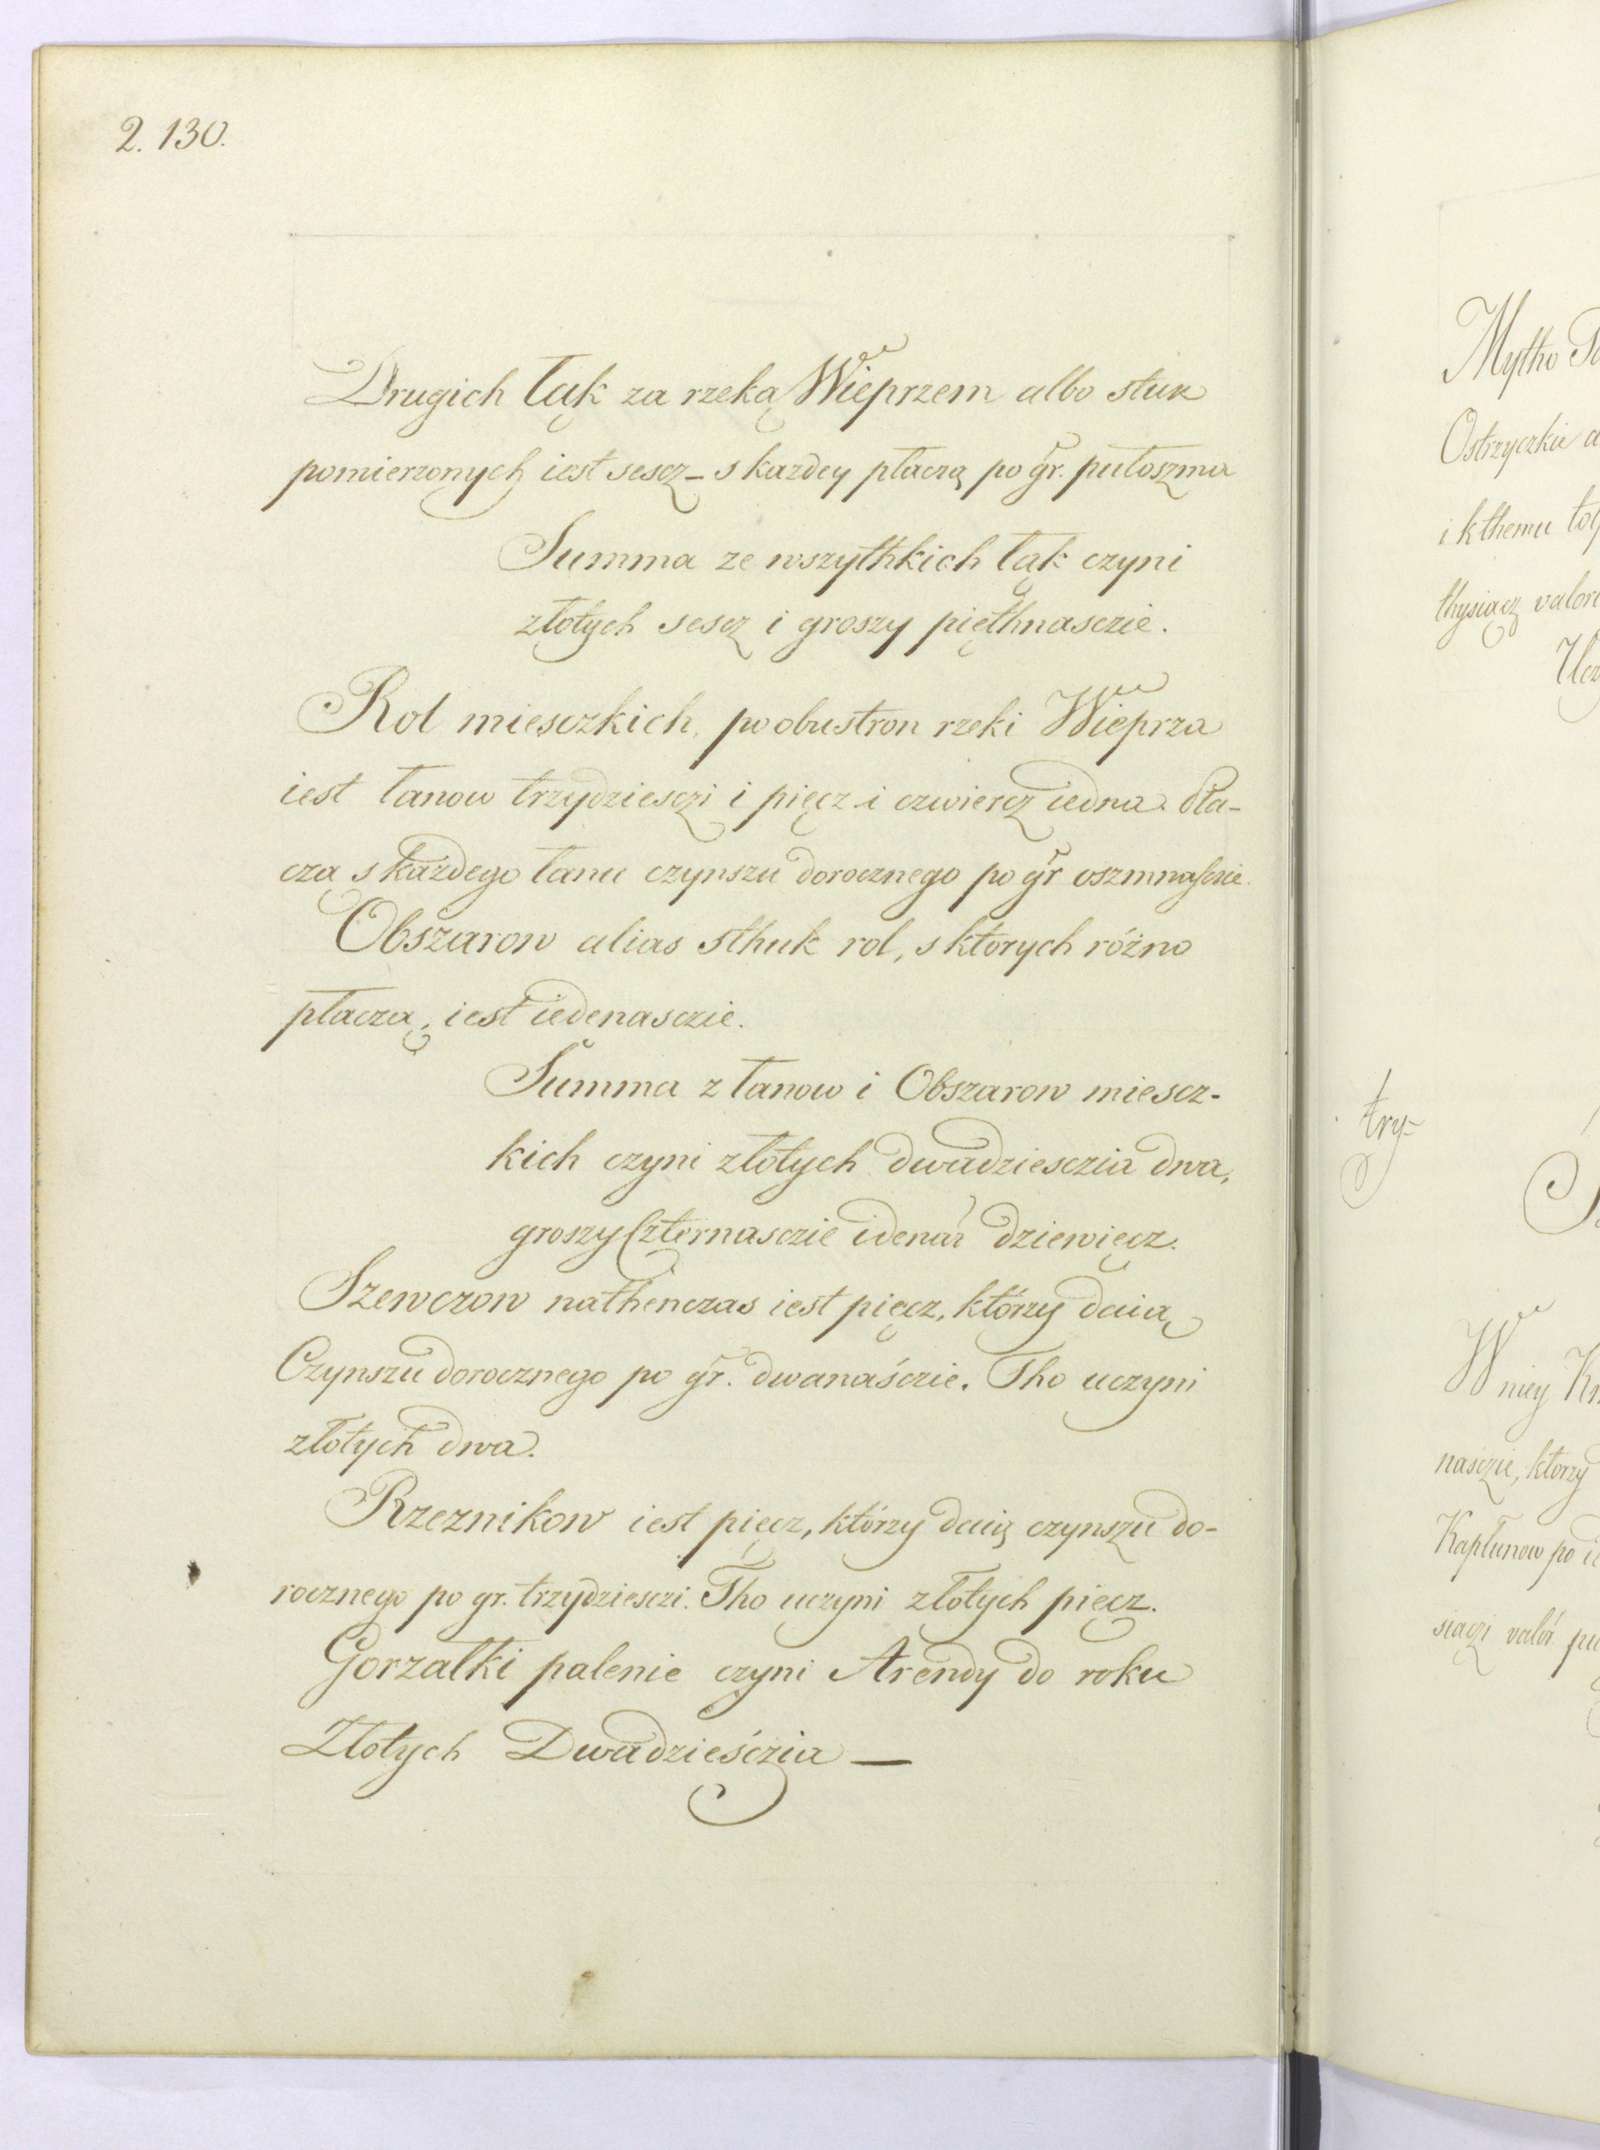 2. 130.
Drugich łąk za rzeką Wieprzem albo stuk
pomierzonych iest sescz – s kazdey płaczą po gr. pułoszma
Summa ze wszythkich łąk czyni
złotych sescz i groszy pięthnasczie.
Rol miesczkich, po obustron rzeki Wieprza
iest łanow trzydziesczi i pięcz i czwiercz iedna. Pła-
czą s każdego łanu czynszu dorocznego po gr oszmnasczie.
Obszarow alias sthuk rol, s ktorych różno
płaczą, iest iedenasczie.
Summa z łanow i Obszarow miescz-
kich czyni złotych dwadziesczia dwa,
groszy Czternasczie i denar dziewięcz.
Szewczow nathenczas iest pięcz, którzy daią
Czynszu dorocznego po gr. dwanaśczie. Tho uczyni
złotych dwa.
Rzeznikow iest pięcz, którzy daią czynszu do-
rocznego po gr. trzydziesczi. Tho uczyni złotych pięcz.
Gorzałki palenie czyni Arendy do roku
Złotych Dwadzieśczia —
Mytho
Ostrzyczkie a
i kthemu
thysiącz valor
try-
W niey
nasczie, ktorzy
Kapłunow po
siączi valor.